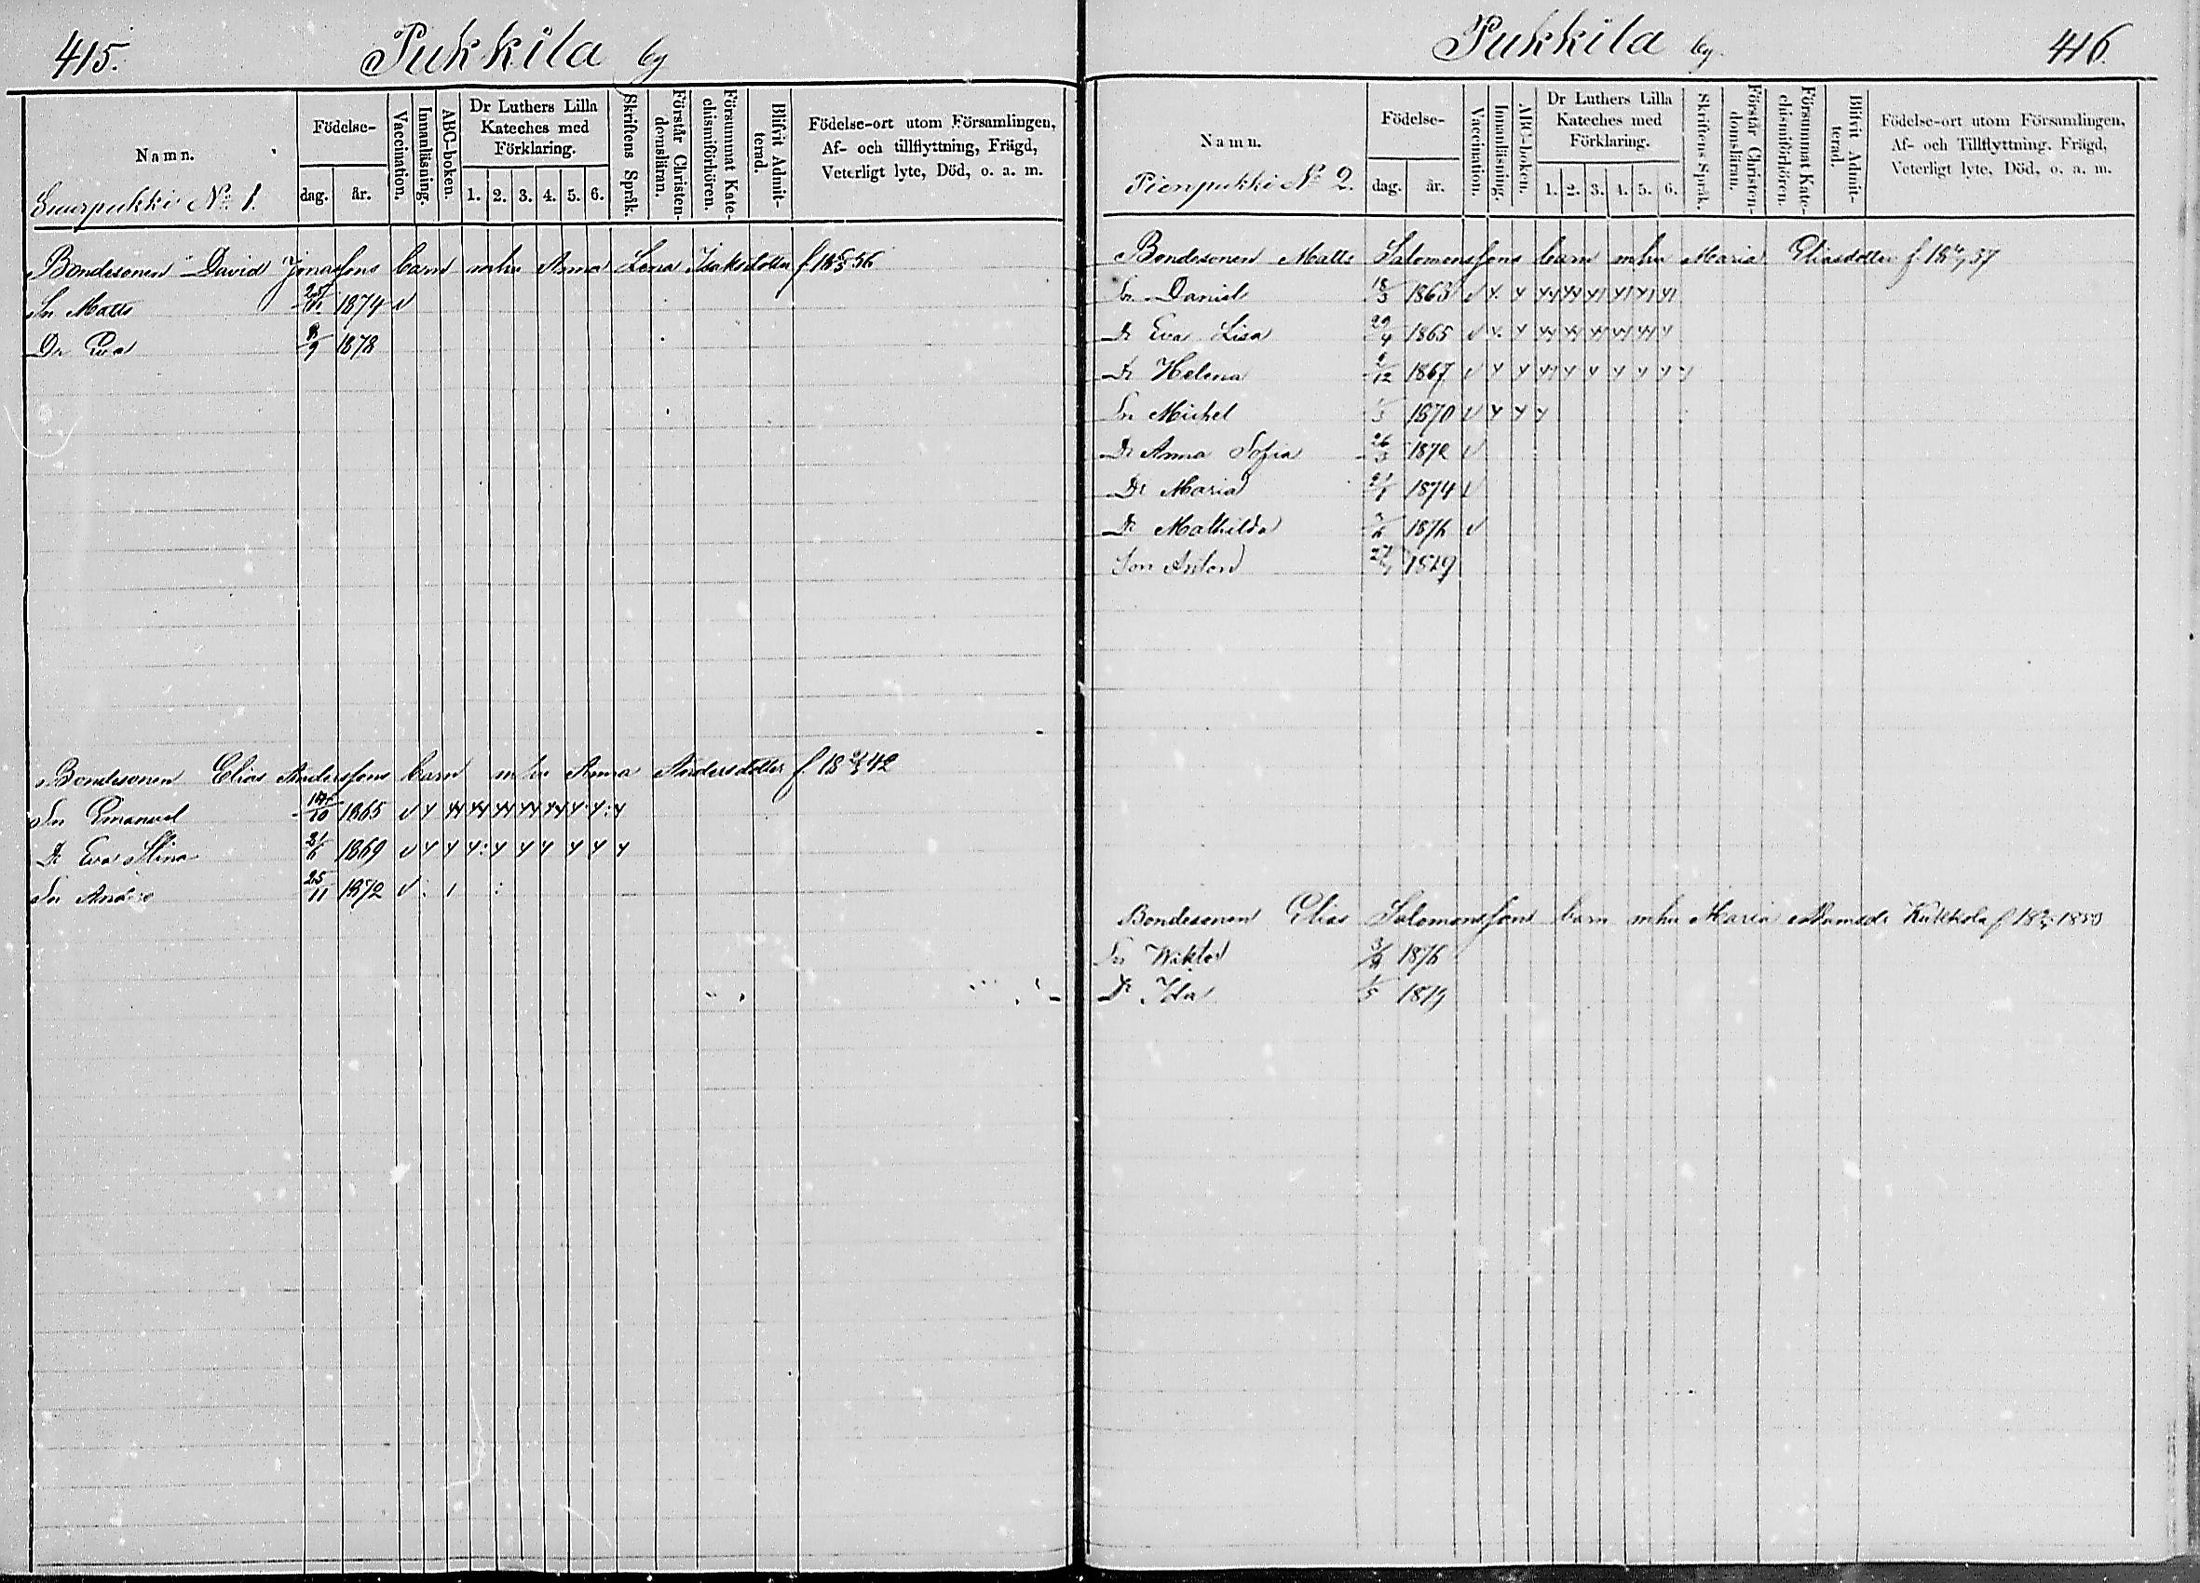 415.
Pukkila by
Namn.
Suurpukki No 1.
Födelse-
dag.
år.
Vaccination.
Innanläsning.
ABC-boken.
Dr Luthers Lilla
Kateches med
Förklaring.
1. 2. 3. 4. 5. 6.
Skriftens Språk.
Förstår Christen-
domsläran.
Försummat Kate-
chismiförhören.
Blifvit Admit-
terad.
Födelse-ort utom Församlingen,
Af- och tillflyttning, Frägd,
Veterligt lyte, Död, o. a. m.
Bondesonen David Jonassons barn mhu Anna Lena Isaksdotter f.
Sn Matts 1874
Dr Eva 8/9 1878
Bondesonen Elias Anderssons barn mhu Anna Andersdotter f. 42
Sn Emanuel 1865
Dr Eva Stina 21/6 1869
Sn 25/11 1872
Pukkila by.
416.
Namn.
Pienpukki No 2.
Födelse-
dag.
år.
Vaccination.
Innanläsning.
ABC-boken.
Dr Luthers Lilla
Kateches med
Förklaring.
1. 2. 3. 4. 5. 6.
Skriftens Språk.
Förstår Christen-
domsläran.
Försummat Kate-
chismiförhören.
Blifvit Admit-
terad.
Födelse-ort utom Församlingen,
Af- och Tillflyttning. Frägd,
Veterligt lyte, Död, o. a. m.
Bondesonen Matts Salomonssons barn mhu Maria Eliasdotter f. 37
Sn Daniel 18/3 1863
Dr Eva Lisa 29/4 1865
Dr Helena 1867
Sn Michel 1870
Dr Anna Sofia 26/3 1872
Dr Maria 1874
Dr Mathilda 1876
Son Anton 1879
Bondesonen Elias Salomonssons barn mhu Maria Kukkola f.
Sn Wiktor 1876
Dr Ida 1/5